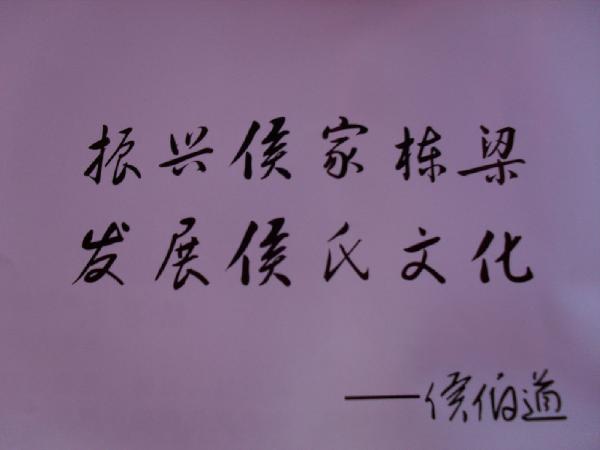 振兴侯家栋梁
发展侯氏文化
——侯伯道